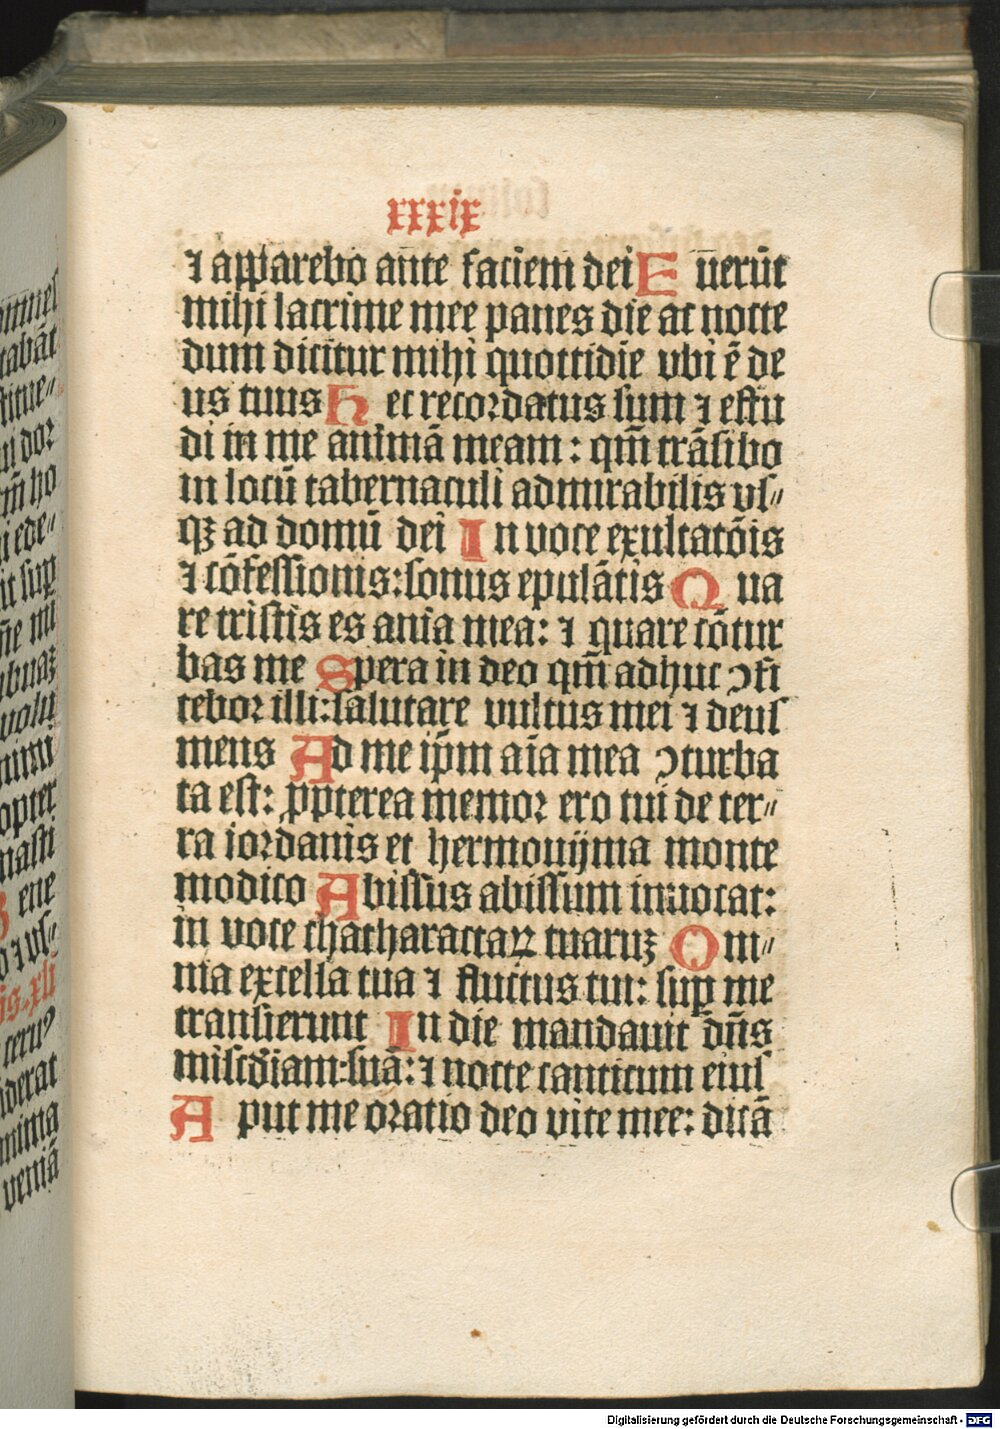 xxxix
⁊ apparebo an̄te faciem dei E ūerūt
mihi lacrime mee panes die ac nocte
dum dicitur mihi quottidie vbi ē de
us tuus H ec recordatus sum ⁊ effu
di in me animā meam : qm̄ trāsibo
in locū tabernaculi admirabilis vs⸗
qꝫ ad domū dei In voce exultatōis
⁊ cōfessionis: sonus epulātis Q ua
re tristis es anīa mea: ⁊ quare cōtur
bas me Spera in deo qm̄ adhuc ↄfi
tebor illi: salutare vultus mei ⁊ deus
meus Ad me ip̄m aīa mea ↄturba
ta est: ꝓpterea memor ero tui de ter⸗
ra iordanis et hermonijma monte
modico Abissus abissum inuocat:
in voce chatharactaꝝ tuaruꝫ Om⸗
nia excelsa tua ⁊ fluctus tui: suꝑ me
transierunt In die mandauit dn̄s
mīscdiam suā: ⁊ nocte canticum eius
A put me oratio deo vite mee: dicā
tabāt
stitue⸗
dor
qm̄ ho
ede⸗
it suꝑ
mi
volu
nimi
opter
nasti
B ene
⁊ vs⸗
is. xli
ceruꝰ
siderat
nima
veniā
Digitalisierung gefördert durch die Deutsche Forschungsgemeinschaft - DFG